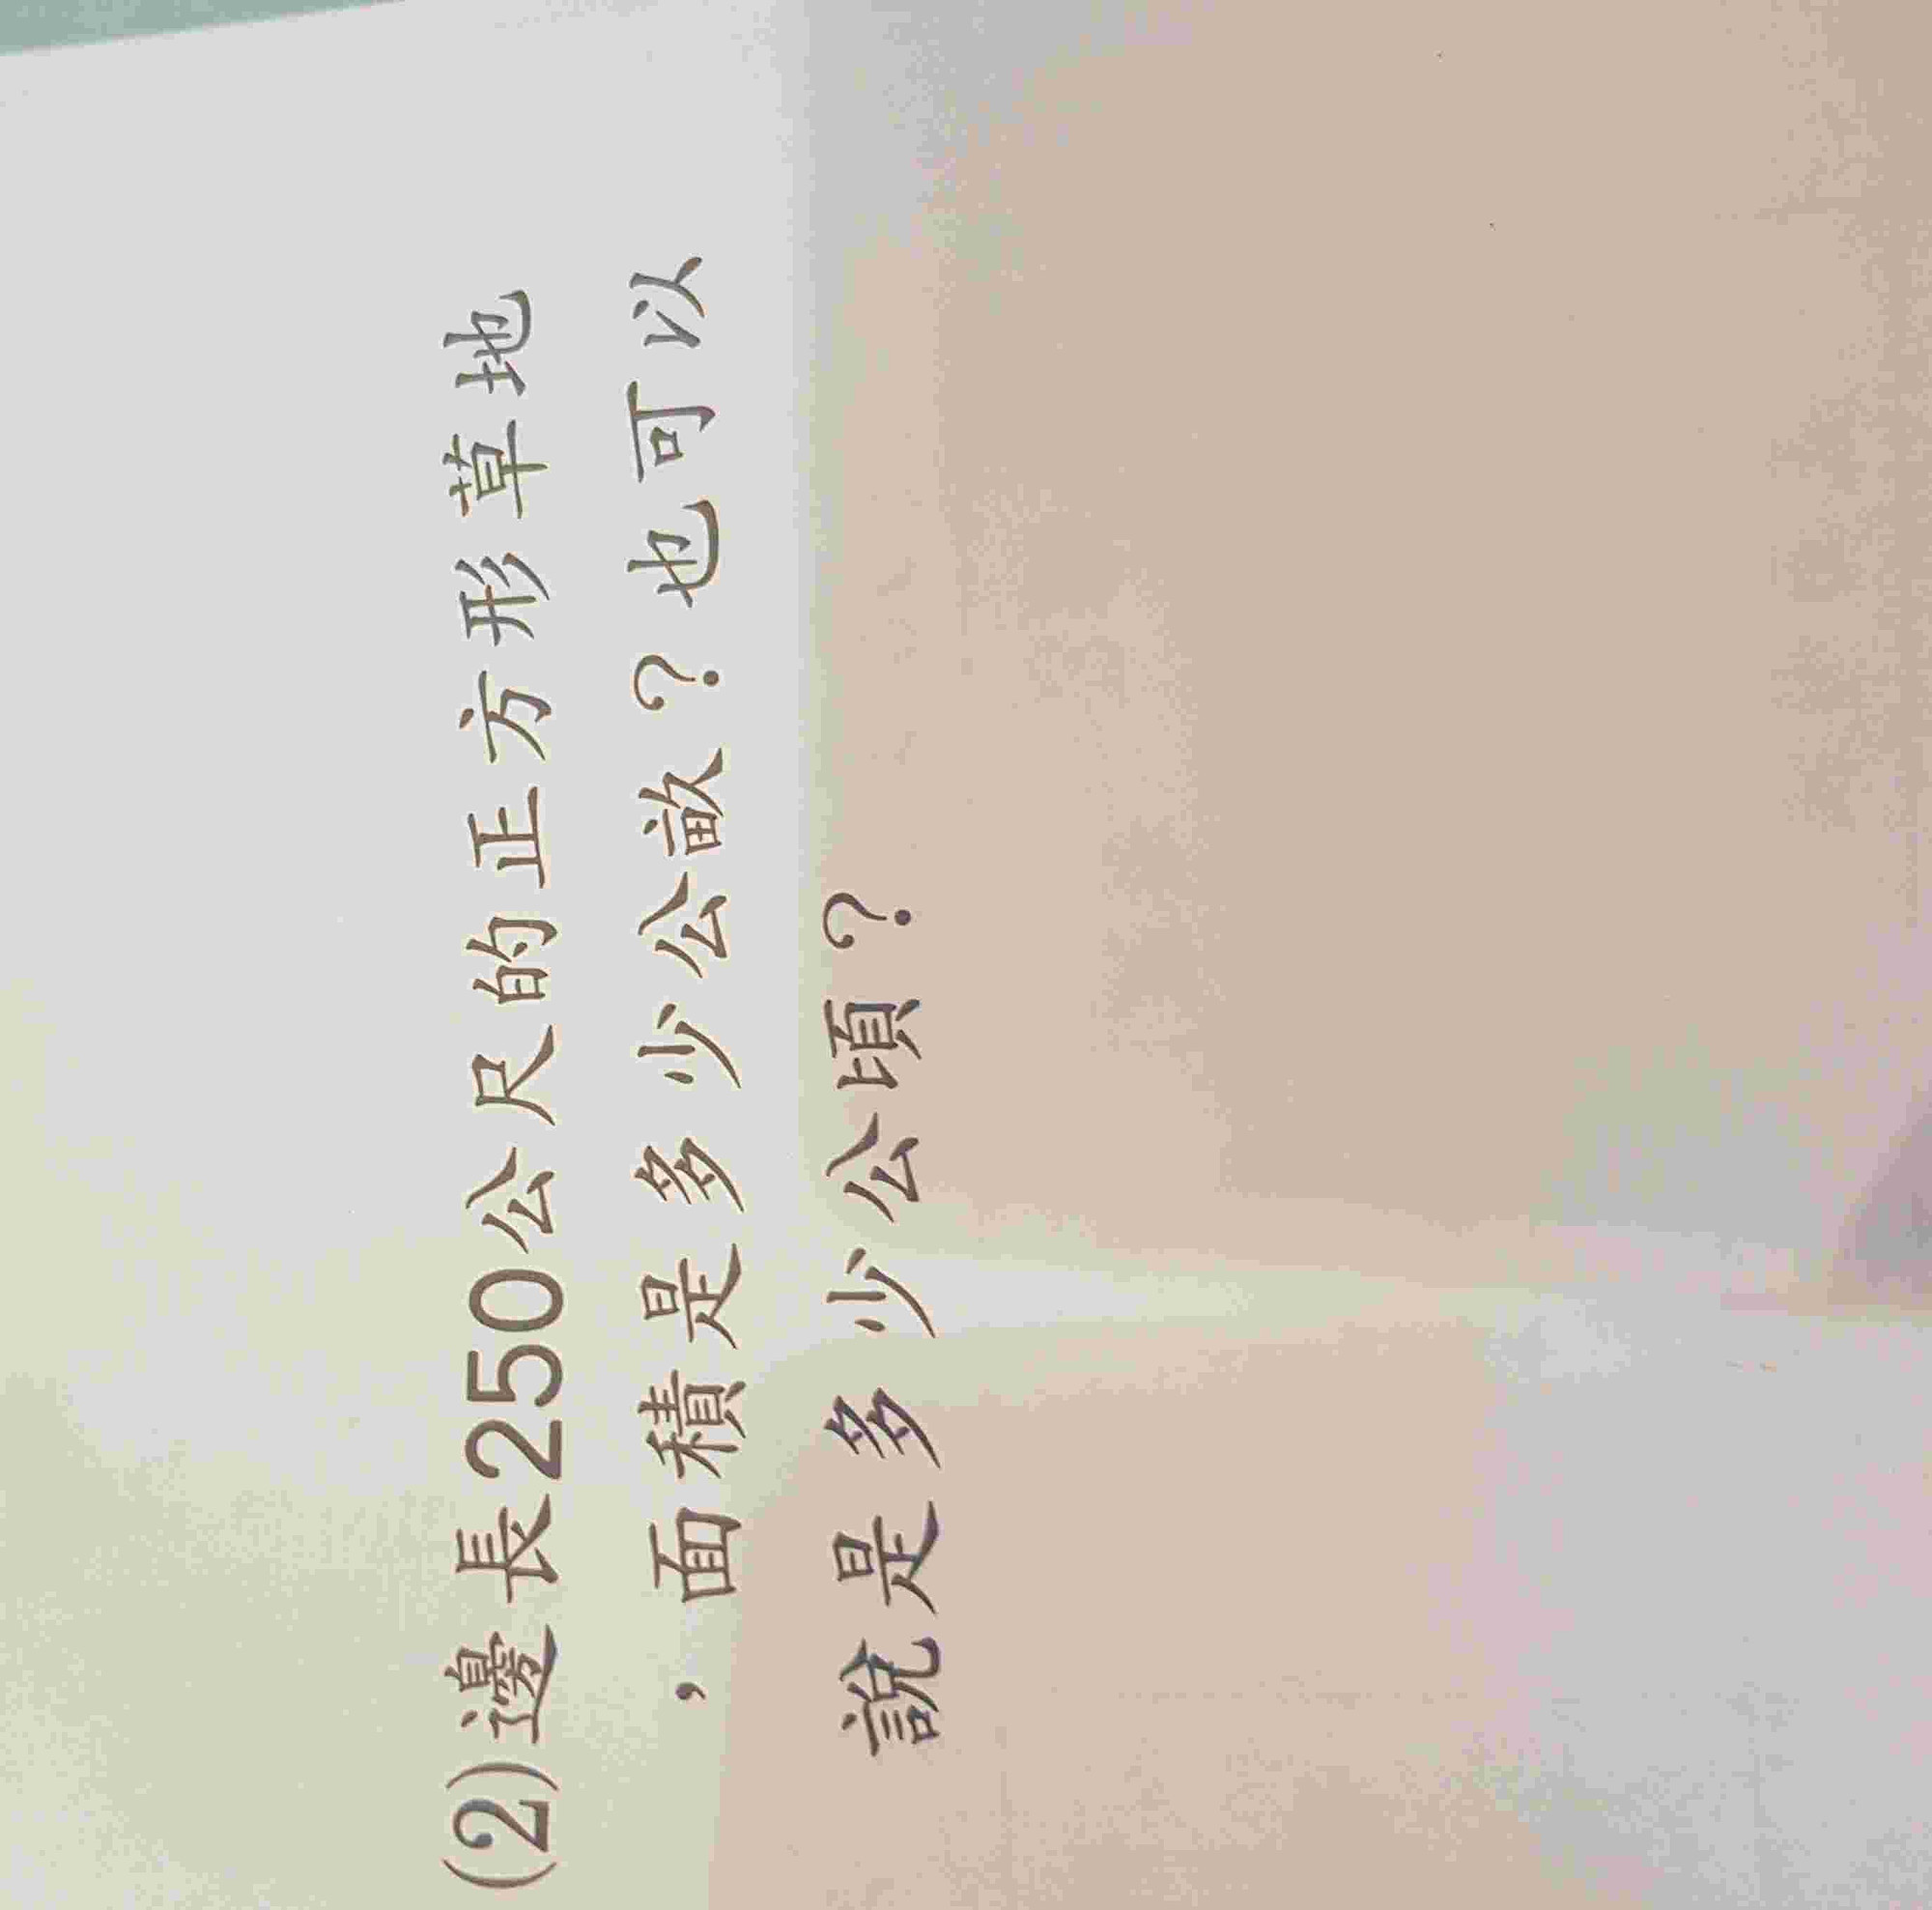 (2)邊長250公尺的正方形草地
，面積是多少公畝？也可以
說是多少公頃？